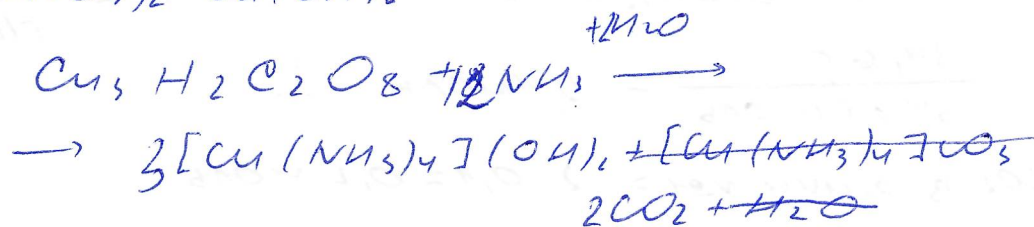 +2H2O
Cu3H2C2O8 + 12NH3 ⟶
⟶ 3[Cu(NH3)4](OH)2 + [Cu(NH3)4]CO3
2CO2 + H2O